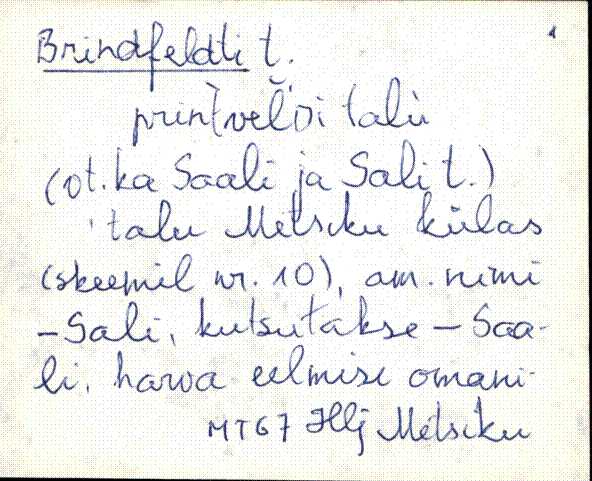 Brindfeldti t.
printvel'di talu
(vt. ka Saali ja Sali t.)
talu Metsiku külas
(skeemil nr. 10), am. nimi
– Sali, kutsutakse – Saa-
li, harva eelmise omani-
MT67 Hlj Metsiku